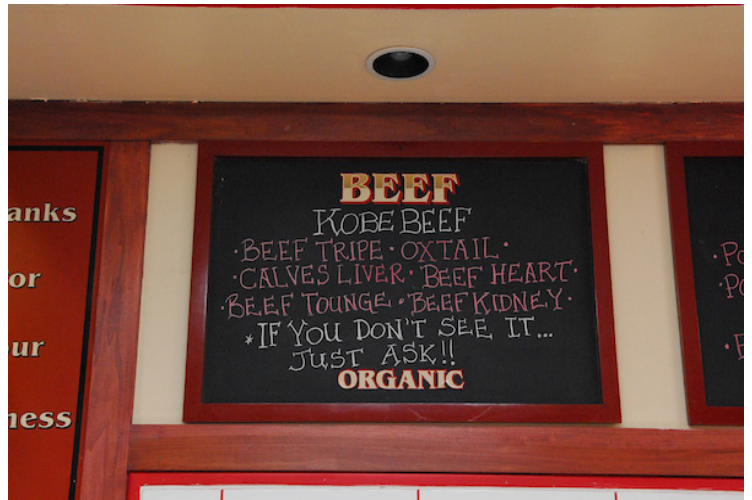 anks
or
ur
ness
BEEF
KOBE BEEF
·BEEF TRIPE·OXTAIL·
·CALVES LIVER·BEEF HEART·
·BEEF TOUNGE·BEEF KIDNEY·
*IF YOU DON'T SEE IT...
JUST ASK!!
ORGANIC